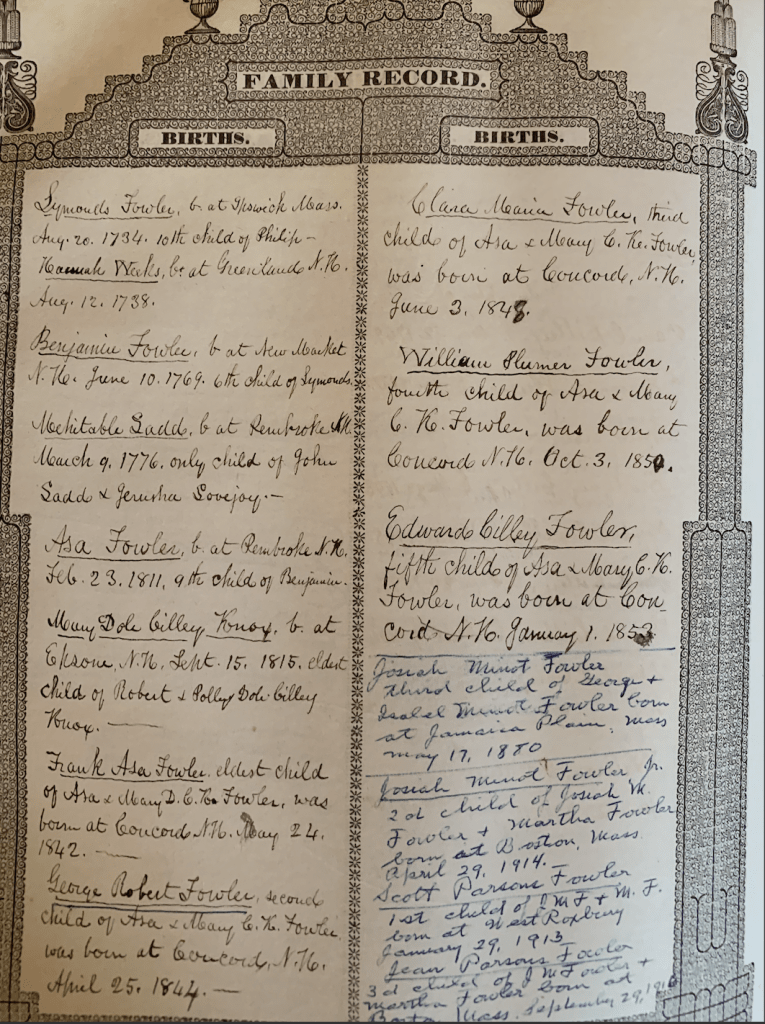 FAMILY RECORD.
BIRTHS.
Symonds Fowler, b. at Ipswich Mass.
Aug. 20. 1734. 10th child of Philip –
Hannah Weeks, b. at Greenland N.H.
Aug. 12. 1738.
Benjamin Fowler, b at New Market
N.H. June 10. 1769. 6th child of Symonds.
Mehitable Ladd, b at Pembroke N.H.
March 9. 1776. only child of John
Ladd & Jerusha Lovejoy. –
Asa Fowler, b. at Pembroke N.H.
Feb. 23. 1811, 9th child of Benjamin.
Mary Dole Cilley Knox, b. at
Epsom, N.H. Sept. 15. 1815. eldest
child of Robert & Polly Dole Cilley
Knox. —
Frank Asa Fowler, eldest child
of Asa & Mary D. C. K. Fowler, was
born at Concord N.H. May 24.
1842. —
George Robert Fowler, second
child of Asa & Mary C. K. Fowler
was born at Concord, N.H.
April 25. 1844. —
BIRTHS.
Clara Maria Fowler, third
child of Asa & Mary C. K. Fowler,
was born at Concord, N.H.
June 3. 1848.
William Plumer Fowler,
fourth child of Asa & Mary
C. K. Fowler, was born at
Concord N.H. Oct. 3. 1850.
Edward Cilley Fowler,
fifth child of Asa & Mary C. K.
Fowler, was born at Con-
cord N.H. January 1. 1853
Josiah Minot Fowler
third child of George +
Isabel Minot Fowler born
at Jamaica Plain, Mass
May 17, 1880
Josiah Minot Fowler Jr.
2d child of Josiah M.
Fowler + Martha Fowler
born at Boston, Mass.
April 29, 1914.
Scott Parsons Fowler
1st child of J M F + M. F.
born at West Roxbury
January 29, 1913
Jean Parsons Fowler
3d child of J M Fowler +
Martha Fowler born at
Boston, Mass. September 29, 1916